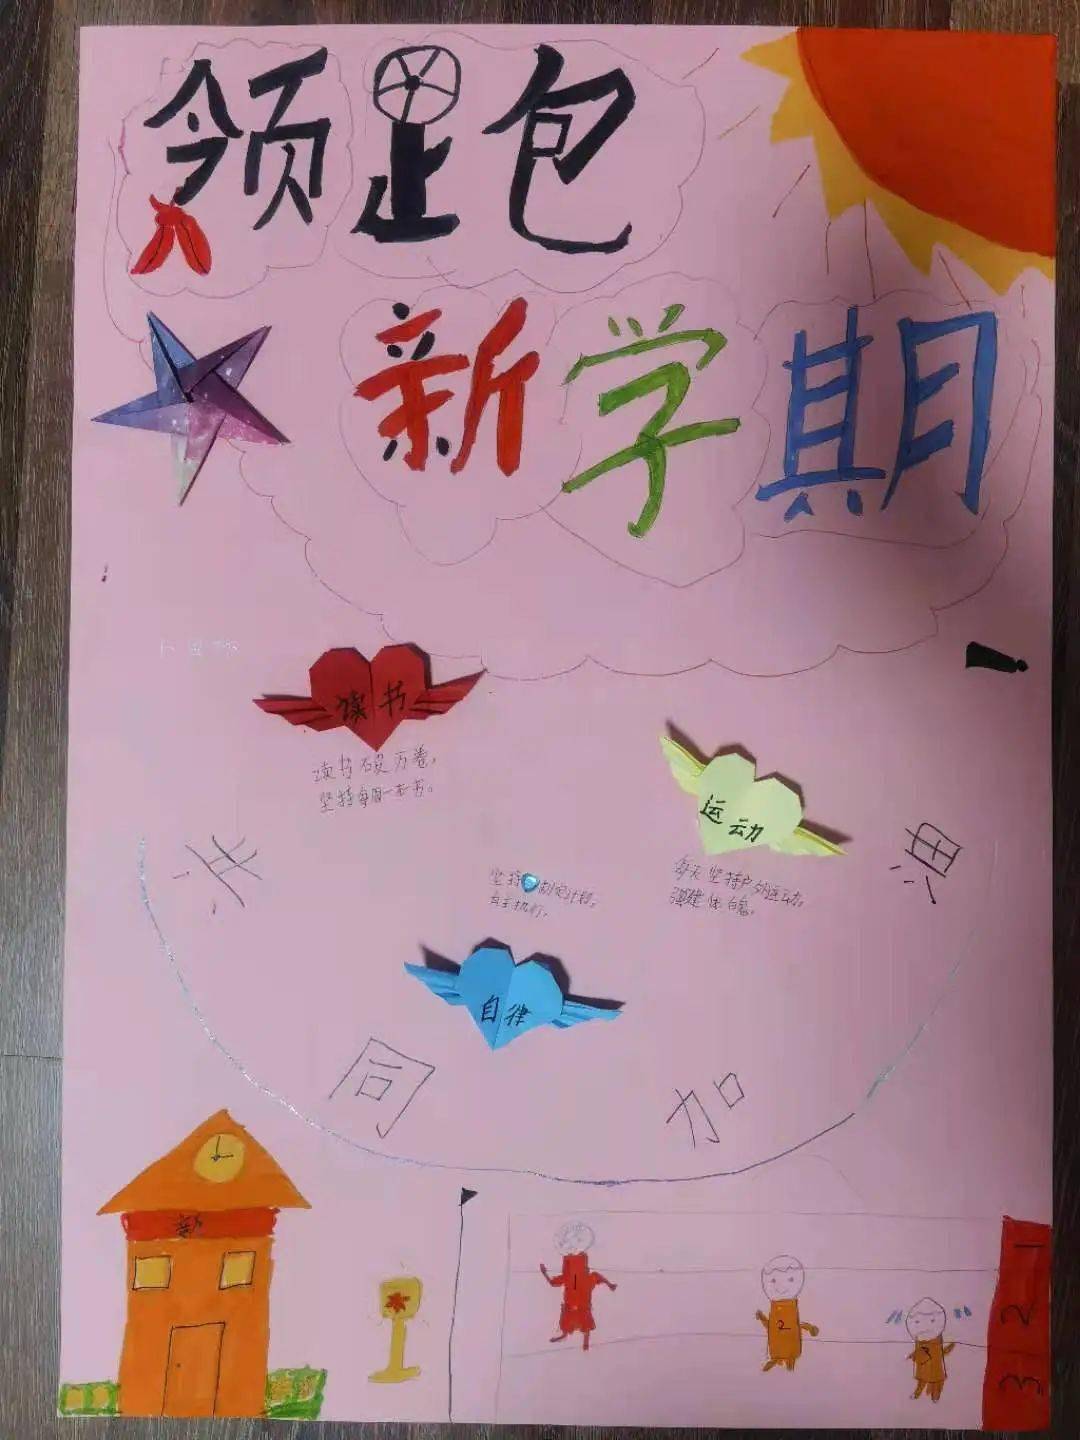 领跑
新学期
读书
读书破万卷，
坚持每周一本书。
运动
每天坚持户外运动，
强健体魄。
坚持制定计划，
自主执行。
自律
共同加油
新
1
2
3
1
2
3